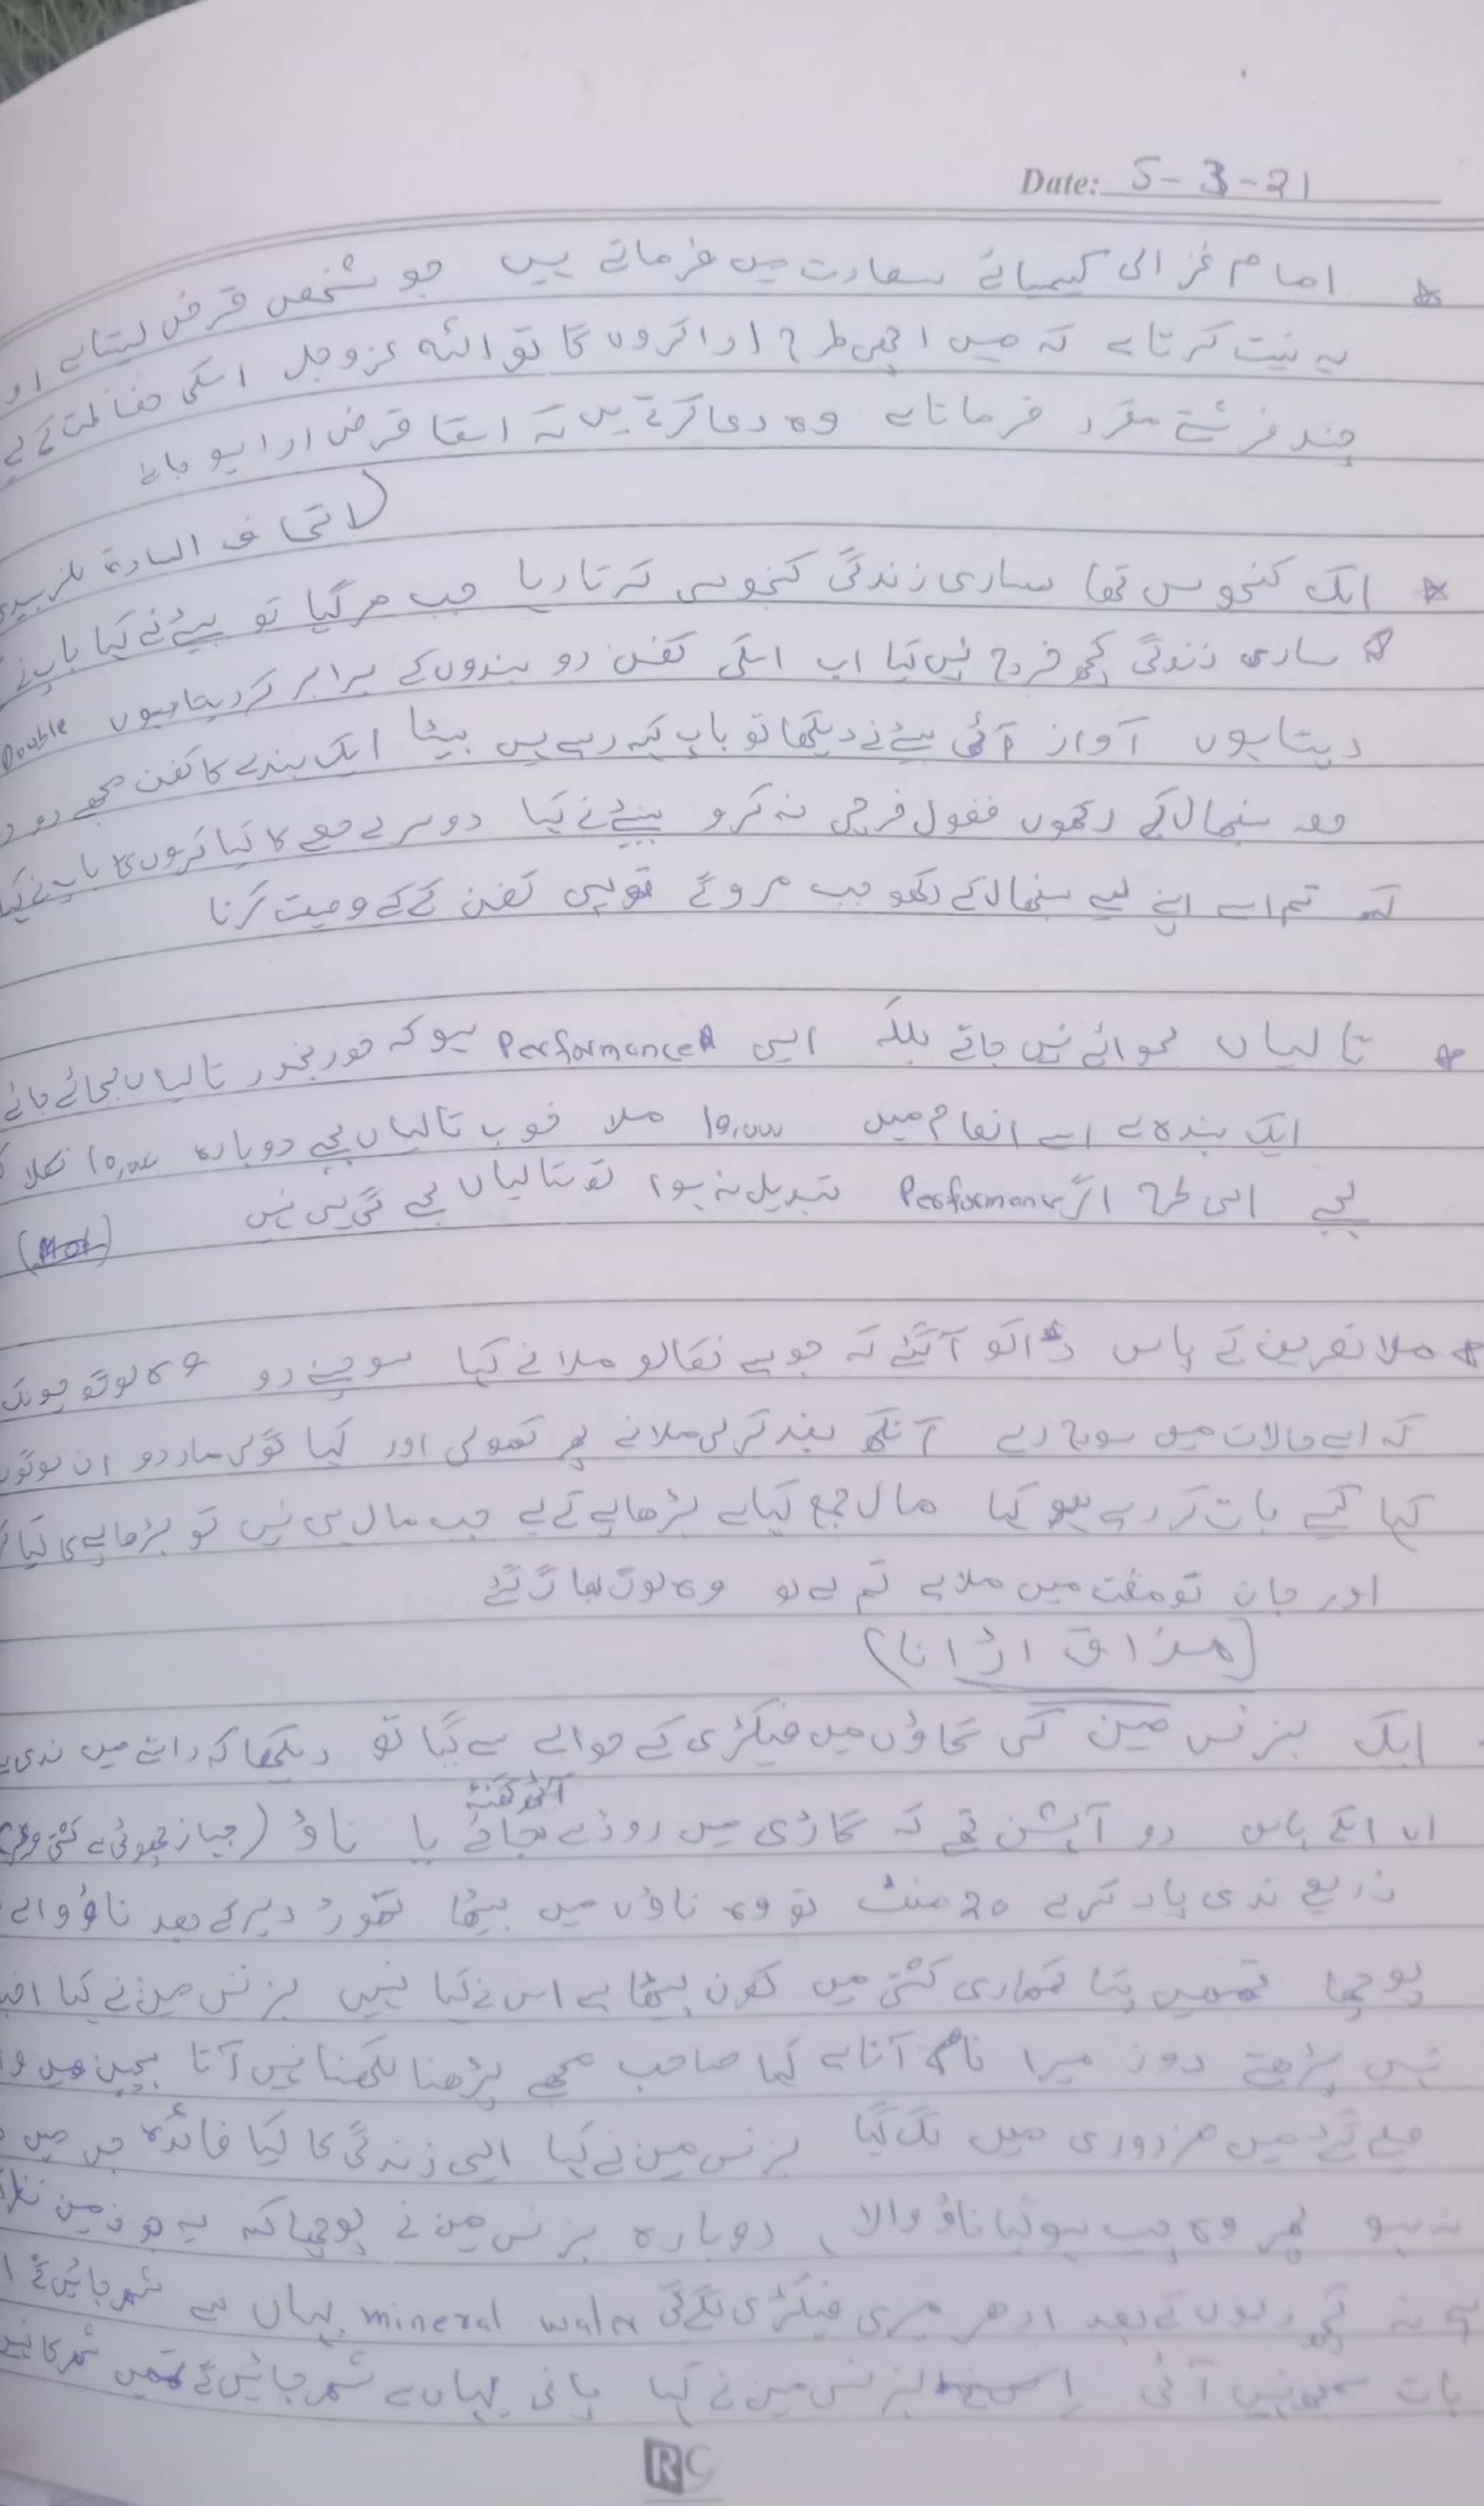 Date: 5-3-21
امام غزالی کیمیائے سعادت میں فرماتے ہیں جو شخص قرض لیتا ہے او
یہ نیت کرتا ہے کہ میں اچھی طرح ادا کروں گا تو اللہ عزوجل اسکی حفاظت کے لیے
چند فرشتے مقرر فرماتا ہے وہ دعا کرتے ہیں کہ اسکا قرض ادا ہو جائے
(اتحاف السادۃ للزبیدی
ایک کنجوس تھا ساری زندگی کنجوسی کرتا رہا جب مر گیا تو بیٹے نے کہا باپ نے
ساری زندگی کچھ خرچ نہیں کیا اب اسکی کفن دو بندوں کے برابر کر دیتا ہوں Double
دیتا ہوں آواز آئی بیٹے نے دیکھا تو باپ کہہ رہے ہیں بیٹا ایک بندے کا کفن مجھے دو
سنبھال کے رکھوں فضول خرچی نہ کرو بیٹے نے کہا دوسرے حصے کا کیا کروں گا باپ نے کہا
کہ تم اسے اپنے لیے سنبھال کے رکھو جب مرو گے تو یہی کفن کے کے وصیت کرنا
تالیاں بجوائے نہیں جاتے بلکہ ایسی Performance ہو کہ خود بخود تالیاں بجائے جائے
ایک بندہ ہے اسے انعام میں 10,000 ملا خوب تالیاں بجے دوبارہ 10,000 نکلا
بجے اسی طرح اگر Performance تبدیل نہ ہو تو تالیاں بجے گی ہی نہیں
ملا نصرالدین کے پاس ڈاکو آگئے کہ جو ہے نکالو ملا نے کہا سوچنے دو وہ لوگ چونک
کہ ایسے حالات میں سوچ رہے آنکھ بند کر لی ملا نے پھر کھولی اور کہا گولی مار دو ان لوگوں
کہا کیسے بات کر رہے ہو کہا مال جمع کیا ہے بڑھاپے کے لیے جب مال ہی نہیں تو بڑھاپے کا کیا
اور جان تو مفت میں ملا ہے تم لے لو وہ لوگ بھاگ گئے
(مذاق اڑانا)
ایک بزنس مین کسی گاؤں میں فیکٹری کے حوالے سے گیا تو دیکھا کہ راستے میں ندی ہے
آٹھ گھنٹہ
اب انکے پاس دو آپشن تھے کہ گاڑی میں روڈ سے جائے یا ناؤ (جہاز چھوٹی ہے کشتی وغیرہ)
ذریعے ندی پار کرے 20 منٹ تو وہ ناؤں میں بیٹھا تھوڑ دیر کے بعد ناؤ والے
پوچھا تمہیں پتا تمہاری کشتی میں کون بیٹھا ہے اس نے کہا نہیں بزنس مین نے کہا
نہیں پڑھتے روز میرا نام آتا ہے کہا صاحب مجھے پڑھنا لکھنا نہیں آتا بچپن میں
چلے گئے میں مزدوری میں لگ گیا بزنس مین نے کہا ایسی زندگی کا کیا فائدہ جس میں
نہ ہو پھر وہ چپ ہو گیا ناؤ والا، دوبارہ بزنس مین نے پوچھا کہ یہ جو زمین نظر
ہے نہ کچھ دنوں کے بعد ادھر میری فیکٹری لگے گی mineral water یہاں سے شہر جائیں گے
بات سمجھ نہیں آئی بزنس مین نے کہا پانی یہاں سے شہر جائیں گے تمہیں شہر کا
RC